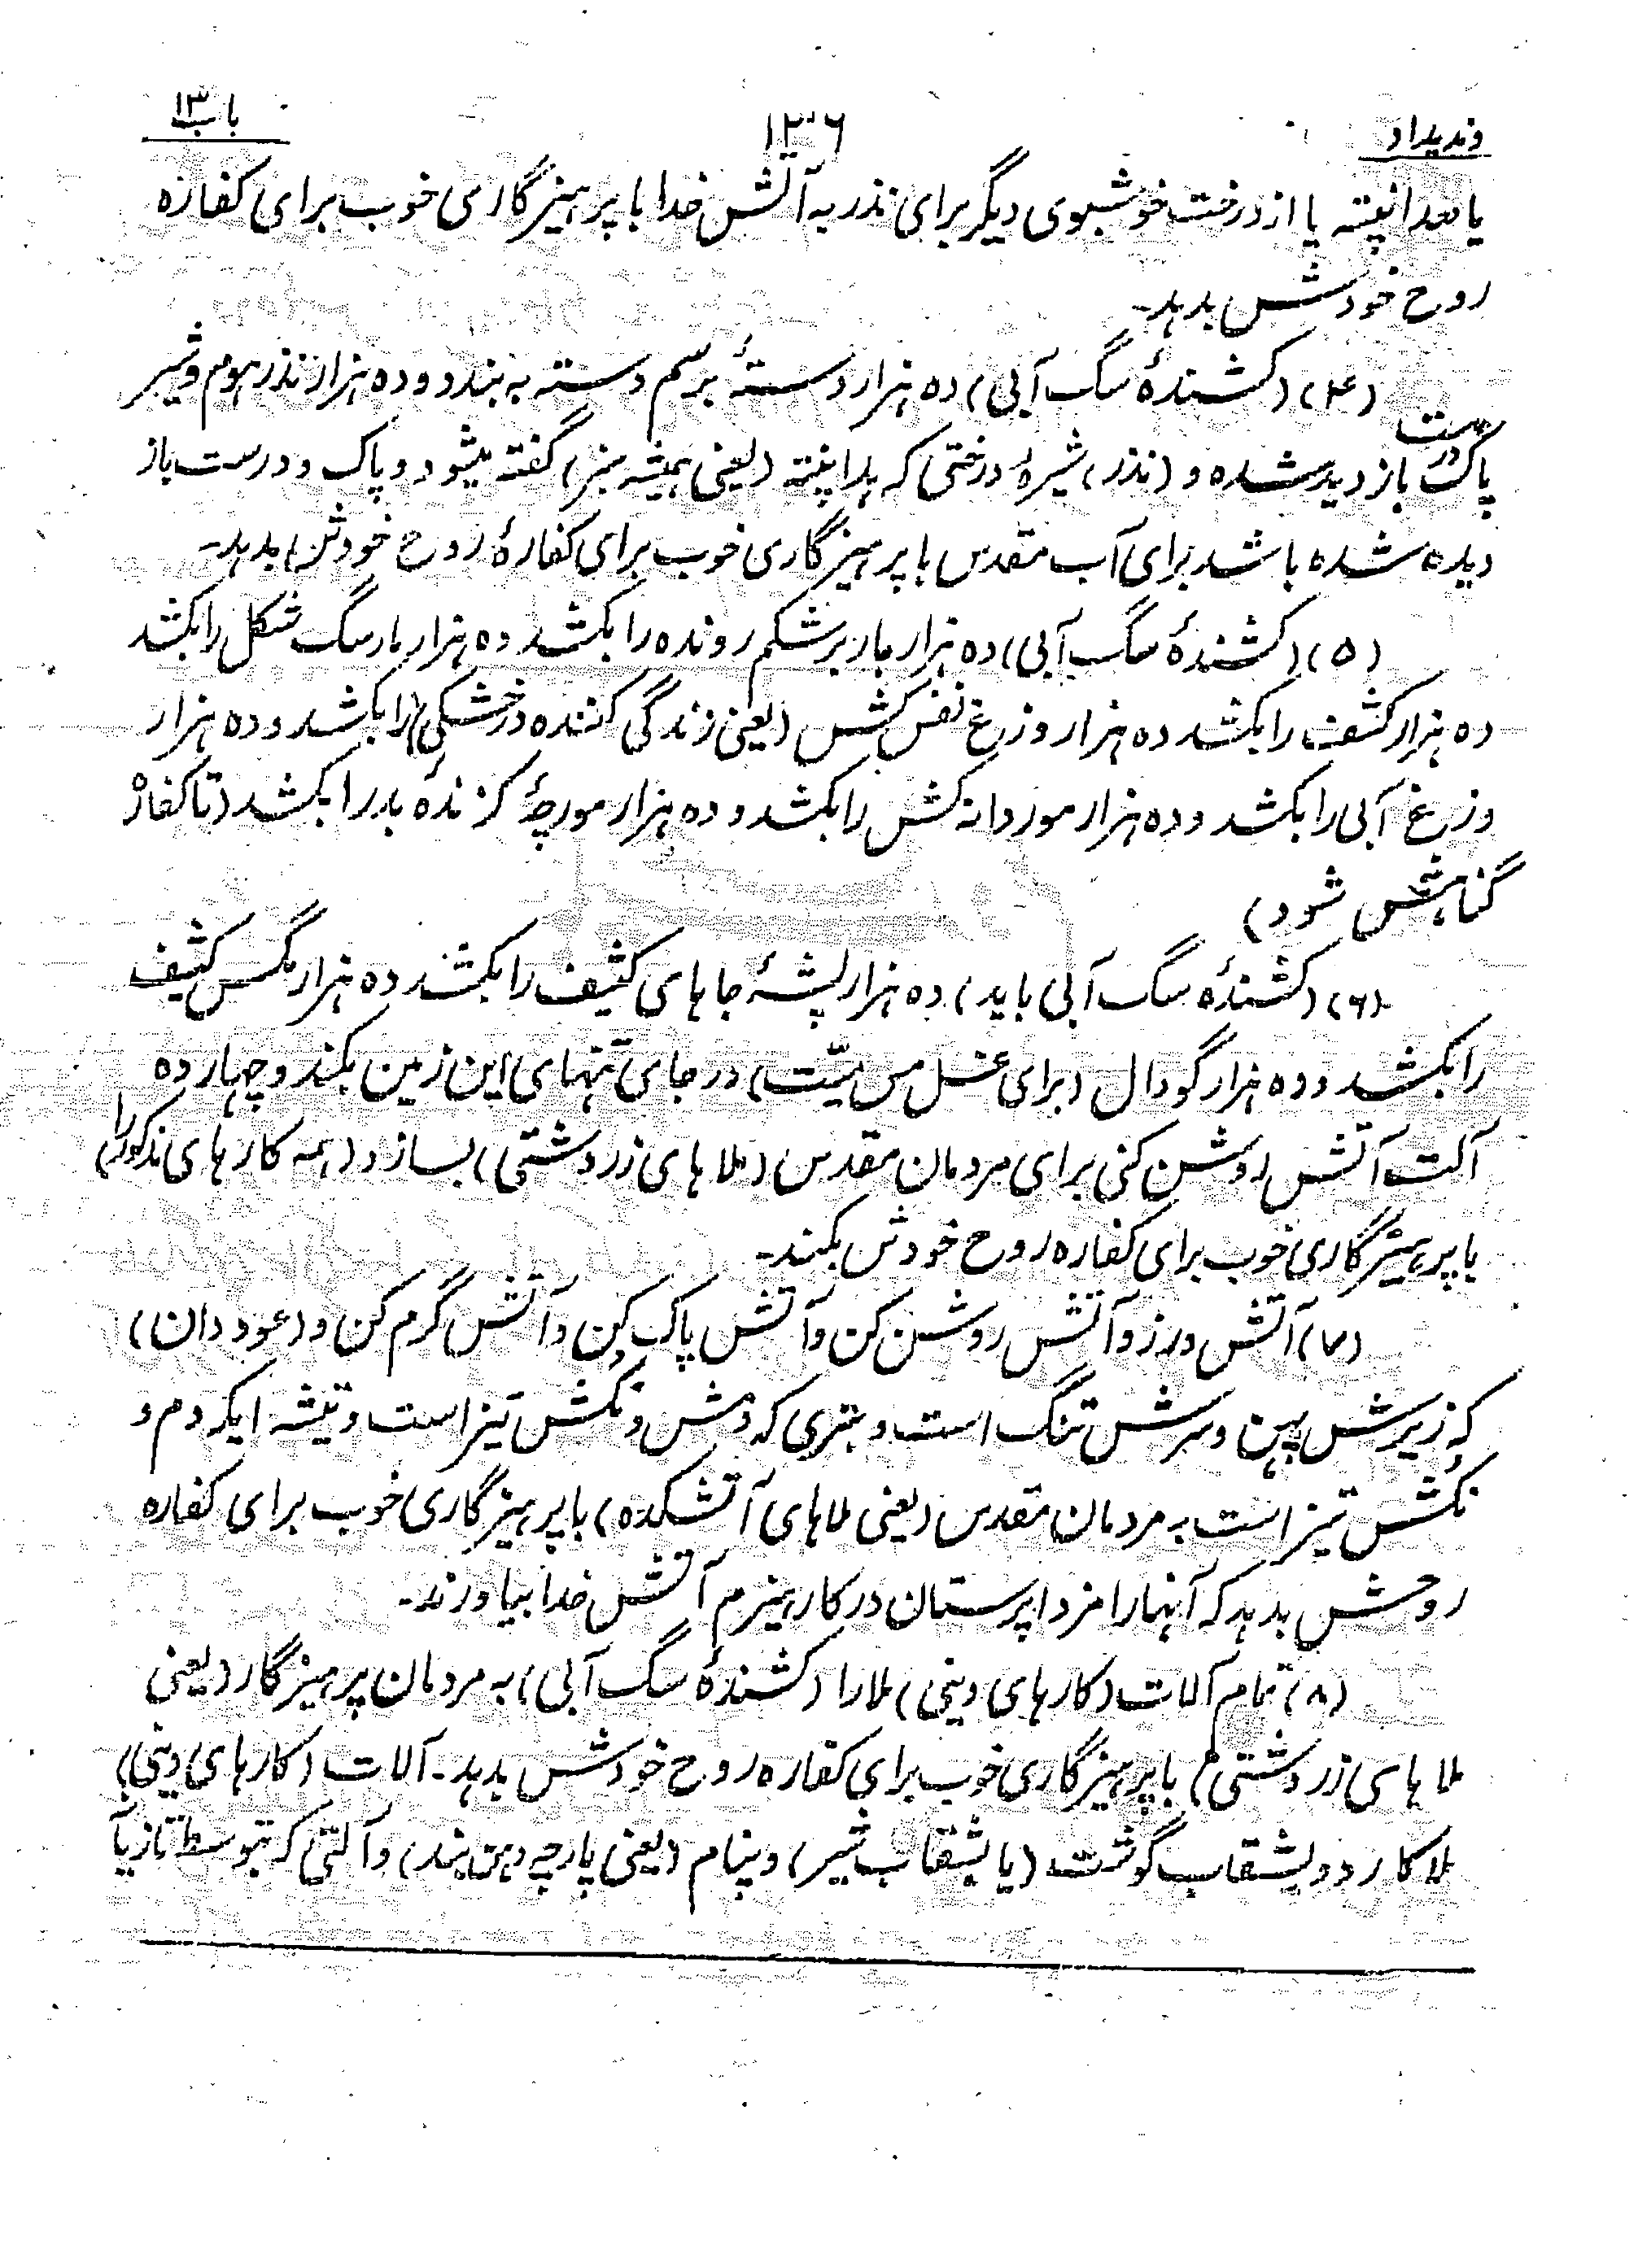 وندیداد ۱۳۶ باب ۱۳
یا هدانپته یا از درخت خوشبوی دیگر برای نذر به آتش خدا با پرهیزگاری خوب برای کفاره
روح خودش بدهد-
(۴) (کشندهٔ سگ آبی) ده هزار دستهٔ برسم دسته به بندد و ده هزار نذر هوم و شیر
پاک درست باز دید شده و (نذر) شیرهٔ درختی که هدانپته (یعنی همیشه سبز) گفته میشود و پاک و درست باز
دیده شده باشد برای آب مقدس با پرهیزگاری خوب برای کفارهٔ روح خودش بدهد-
(۵) (کشندهٔ سگ آبی) ده هزار مار بر شکم رونده را بکشد ده هزار مار سگ شکل را بکشد
ده هزار کشف را بکشد ده هزار وزرغ نفس کش (یعنی زندگی کننده در خشکی) را بکشد و ده هزار
وزرغ آبی را بکشد و ده هزار مور دانه کش را بکشد و ده هزار مورچهٔ گزندهٔ بد را بکشد (تا کفارهٔ
گناهش شود)
(۶) (کشندهٔ سگ آبی باید) ده هزار پشهٔ جاهای کثیف را بکشد ده هزار مگس کثیف
را بکشد و ده هزار گودال (برای غسل مس میّت) در جای تنهای این زمین بکند و چهارده
آلت آتش روشن کنی برای مردمان مقدس (ملاهای زردشتی) بسازد (همه کارهای مذکور را)
با پرهیزگاری خوب برای کفاره روح خودش بکند-
(۷) آتش ورز و آتش روشن کن و آتش پاک کن و آتش گرم کن و (عود دان)
که زیرش پهن و سرش تنگ است و تبری که دمش و نکش تیز است و تیشه ایکه دم و
نکش تیز است به مردمان مقدس (یعنی ملاهای آتشکده) با پرهیزگاری خوب برای کفاره
روحش بدهد که آنها را مزداپرستان در کار هیزم آتش خدا بیاورند-
(۸) تمام آلات (کارهای دینی) ملا را (کشندهٔ سگ آبی) به مردمان پرهیزگار (یعنی
ملاهای زردشتی) با پرهیزگاری خوب برای کفاره روح خودش بدهد- آلات (کارهای دینی)
ملا کارد و بشقاب گوشت (یا بشقاب شیر) و پنام (یعنی پارچه دهن بند) و آلتی که بتوسط تازیا